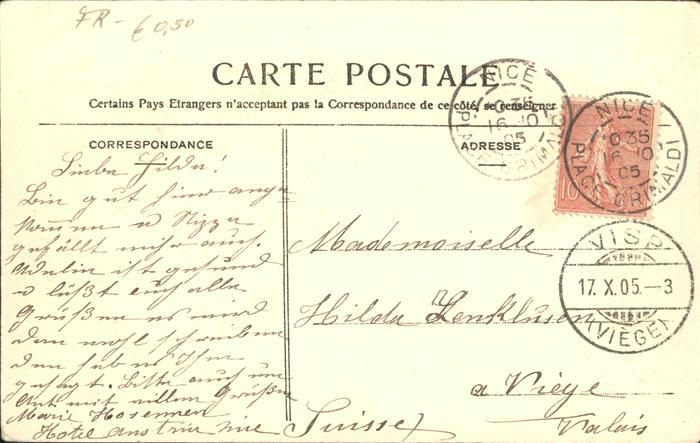 FR - € 0,50
CARTE POSTALE
Certains Pays Etrangers n'acceptant pas la Correspondance de ce côté, se renseigner
CORRESPONDANCE
ADRESSE
NICE
16 10
05
PLACE GRIMALDI
NICE
0 35
6 10
05
PLACE GRIMALDI
10
VISP
17. X. 05. — 3
(VIÈGE)
Liebe Hilda!
Bin gut hier ange
kommen u Nizza
gefällt mir auch.
ist gesund
u läßt euch alle
Grüßen es wird
dan wohl schreiben
den hab es Ihm
gesagt. Bitte auch um
Ant mit villen Grüßen
Marie Hosennen
Hotel
Mademoiselle
Hilda Zenklusen
a Viège
Suisse
Valais